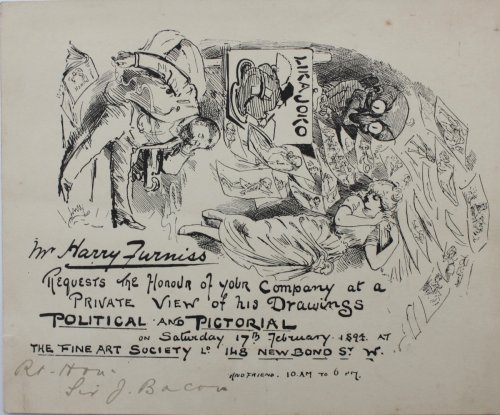 LIKA JOKO
Mr Harry Furniss
Requests the Honour of your Company at a
Private View of his Drawings
Political and Pictorial
on Saturday 17th February 1894 at
The Fine Art Society Ld 148 New Bond St W.
and friend. 10 AM to 6 PM.
Rt. Hon.
Sir J. Bacon